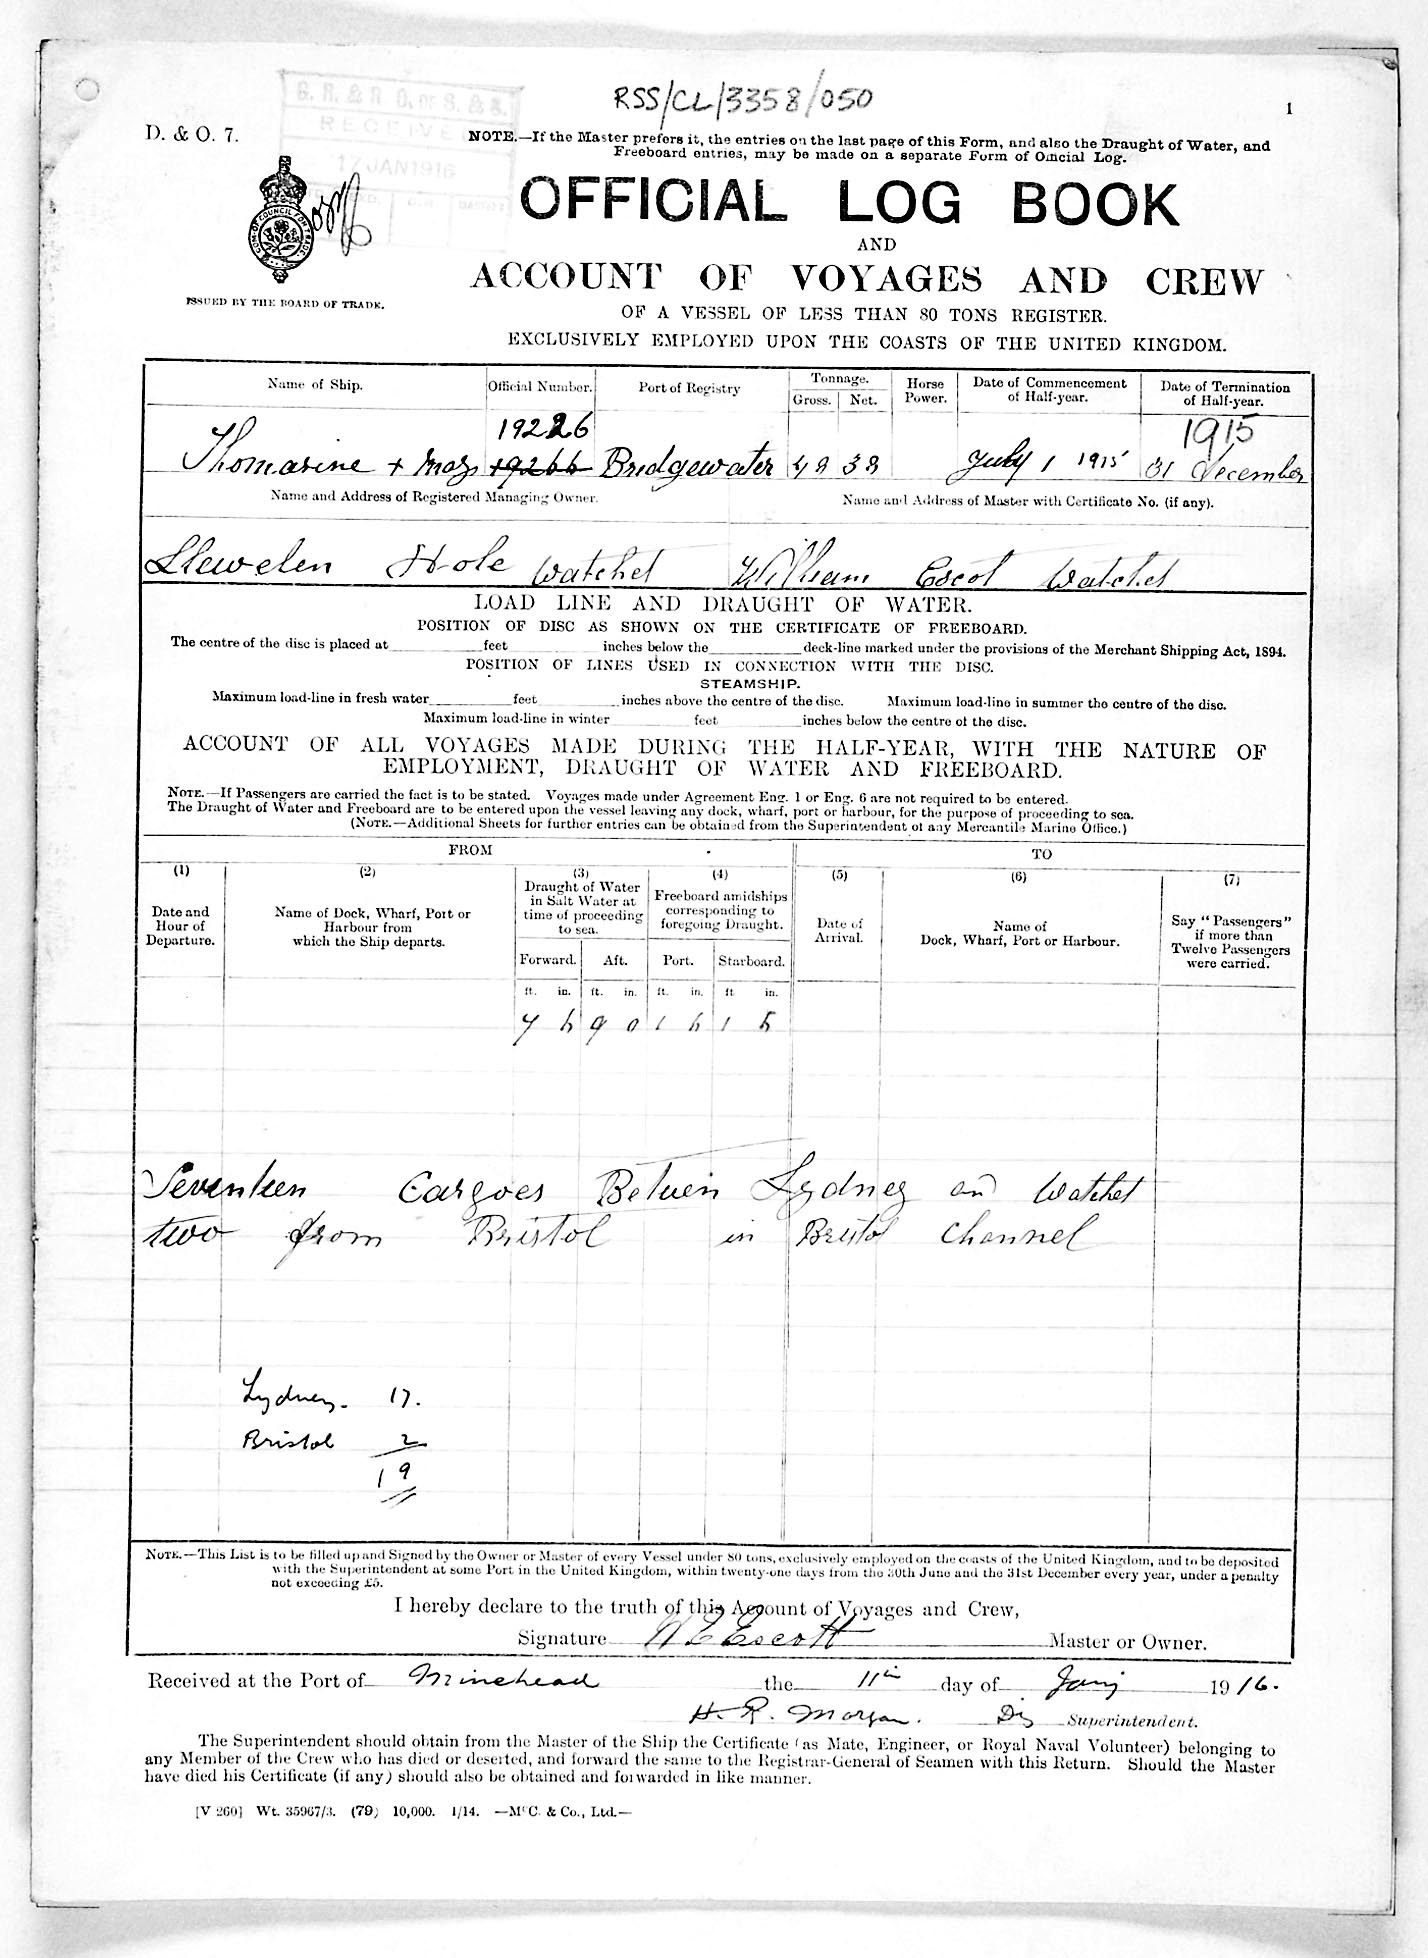 RSS/CL/3358/050
1
S. R. & R. O. OF S. & S.
RECEIVED
17 JAN 1916
D. & O. 7.
NOTE.—If the Master prefers it, the entries on the last page of this Form, and also the Draught of Water, and
Freeboard entries, may be made on a separate Form of Official Log.
OFFICIAL LOG BOOK
AND
ACCOUNT OF VOYAGES AND CREW
ISSUED BY THE BOARD OF TRADE.
OF A VESSEL OF LESS THAN 80 TONS REGISTER.
EXCLUSIVELY EMPLOYED UPON THE COASTS OF THE UNITED KINGDOM.
Name of Ship. Official Number. Port of Registry Tonnage. Gross. Net. Horse Power. Date of Commencement of Half-year. Date of Termination of Half-year.
19226 1915
Thomasine + Mary 19266 Bridgewater 48 38 July 1 1915 31 December
Name and Address of Registered Managing Owner. Name and Address of Master with Certificate No. (if any).
Llewelen Hole Watchet William Escot Watchet
LOAD LINE AND DRAUGHT OF WATER.
POSITION OF DISC AS SHOWN ON THE CERTIFICATE OF FREEBOARD.
The centre of the disc is placed at feet inches below the deck-line marked under the provisions of the Merchant Shipping Act, 1894.
POSITION OF LINES USED IN CONNECTION WITH THE DISC.
STEAMSHIP.
Maximum load-line in fresh water feet inches above the centre of the disc. Maximum load-line in summer the centre of the disc.
Maximum load-line in winter feet inches below the centre of the disc.
ACCOUNT OF ALL VOYAGES MADE DURING THE HALF-YEAR, WITH THE NATURE OF
EMPLOYMENT, DRAUGHT OF WATER AND FREEBOARD.
NOTE.—If Passengers are carried the fact is to be stated. Voyages made under Agreement Eng. 1 or Eng. 6 are not required to be entered.
The Draught of Water and Freeboard are to be entered upon the vessel leaving any dock, wharf, port or harbour, for the purpose of proceeding to sea.
(NOTE.—Additional Sheets for further entries can be obtained from the Superintendent of any Mercantile Marine Office.)
FROM TO
(1) (2) (3) (4) (5) (6) (7)
Date and Hour of Departure.
Name of Dock, Wharf, Port or Harbour from which the Ship departs.
Draught of Water in Salt Water at time of proceeding to sea.
Freeboard amidships corresponding to foregoing Draught.
Date of Arrival.
Name of Dock, Wharf, Port or Harbour.
Say "Passengers" if more than Twelve Passengers were carried.
Forward. Aft. Port. Starboard.
ft. in. ft. in. ft. in. ft. in.
7 6 9 0 1 6 1 6
Seventeen Cargoes Betwein Lydney an Watchet
two from Bristol in Bristol Channel
Lydney. 17.
Bristol 2
19
NOTE.—This List is to be filled up and Signed by the Owner or Master of every Vessel under 80 tons, exclusively employed on the coasts of the United Kingdom, and to be deposited
with the Superintendent at some Port in the United Kingdom, within twenty-one days from the 30th June and the 31st December every year, under a penalty
not exceeding £5.
I hereby declare to the truth of this Account of Voyages and Crew,
Signature W E Escott Master or Owner.
Received at the Port of Minehead the 11th day of Jany 1916.
H. R. Morgan. Dy Superintendent.
The Superintendent should obtain from the Master of the Ship the Certificate (as Mate, Engineer, or Royal Naval Volunteer) belonging to
any Member of the Crew who has died or deserted, and forward the same to the Registrar-General of Seamen with this Return. Should the Master
have died his Certificate (if any) should also be obtained and forwarded in like manner.
[V 260] Wt. 35967/3. (79) 10,000. 1/14. —McC. & Co., Ltd.—